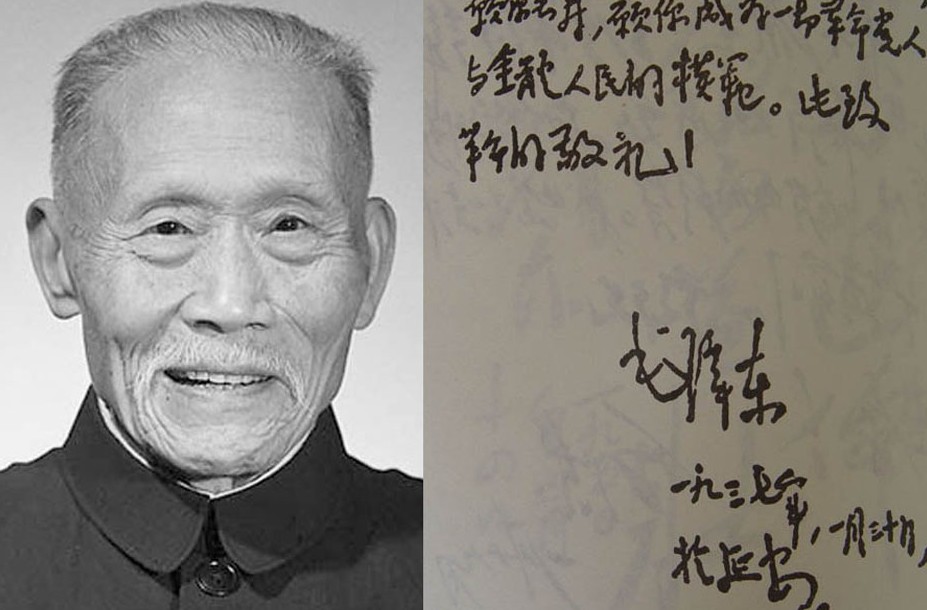 願你成为一切革命党人
与全體人民的模範。此致
革命的敬礼！
毛澤东
一九三七年，一月三十日，
於延安